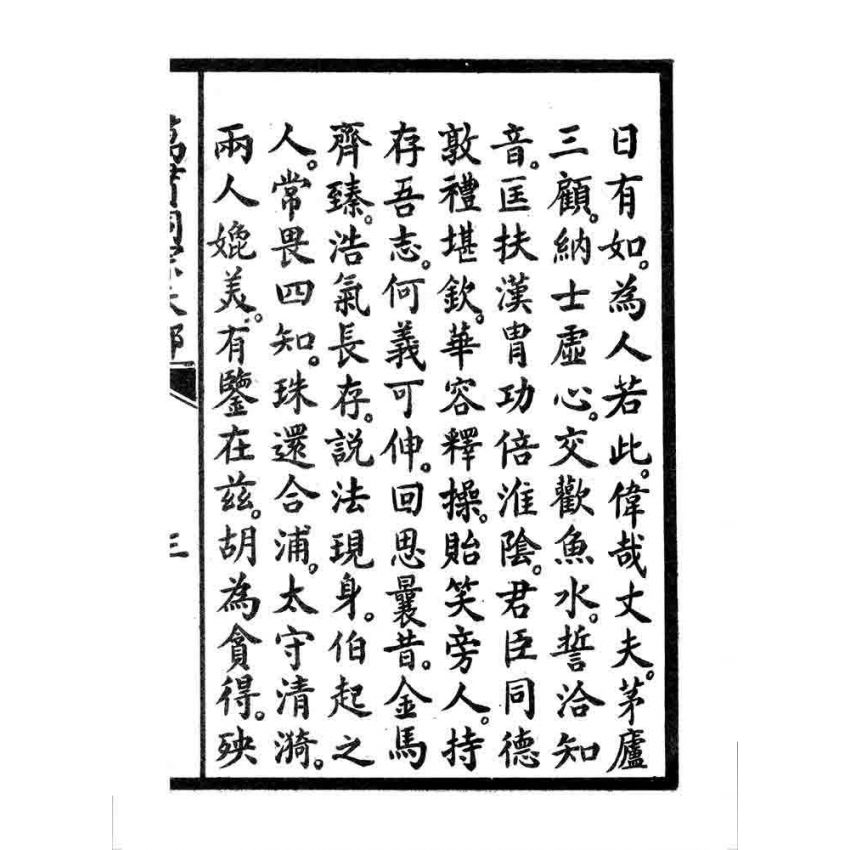 日有如。為人若此。偉哉丈夫。茅廬
三顧。納士虛心。交歡魚水。誓洽知
音。匡扶漢胄功倍淮陰。君臣同德
敦禮堪欽。華容釋操。貽笑旁人。持
存吾志。何義可伸。回思曩昔。金馬
齊臻。浩氣長存。説法現身。伯起之
人。常畏四知。珠還合浦。太守清漪。
兩人媲美。有鑒在兹。胡為貪得。殃
三